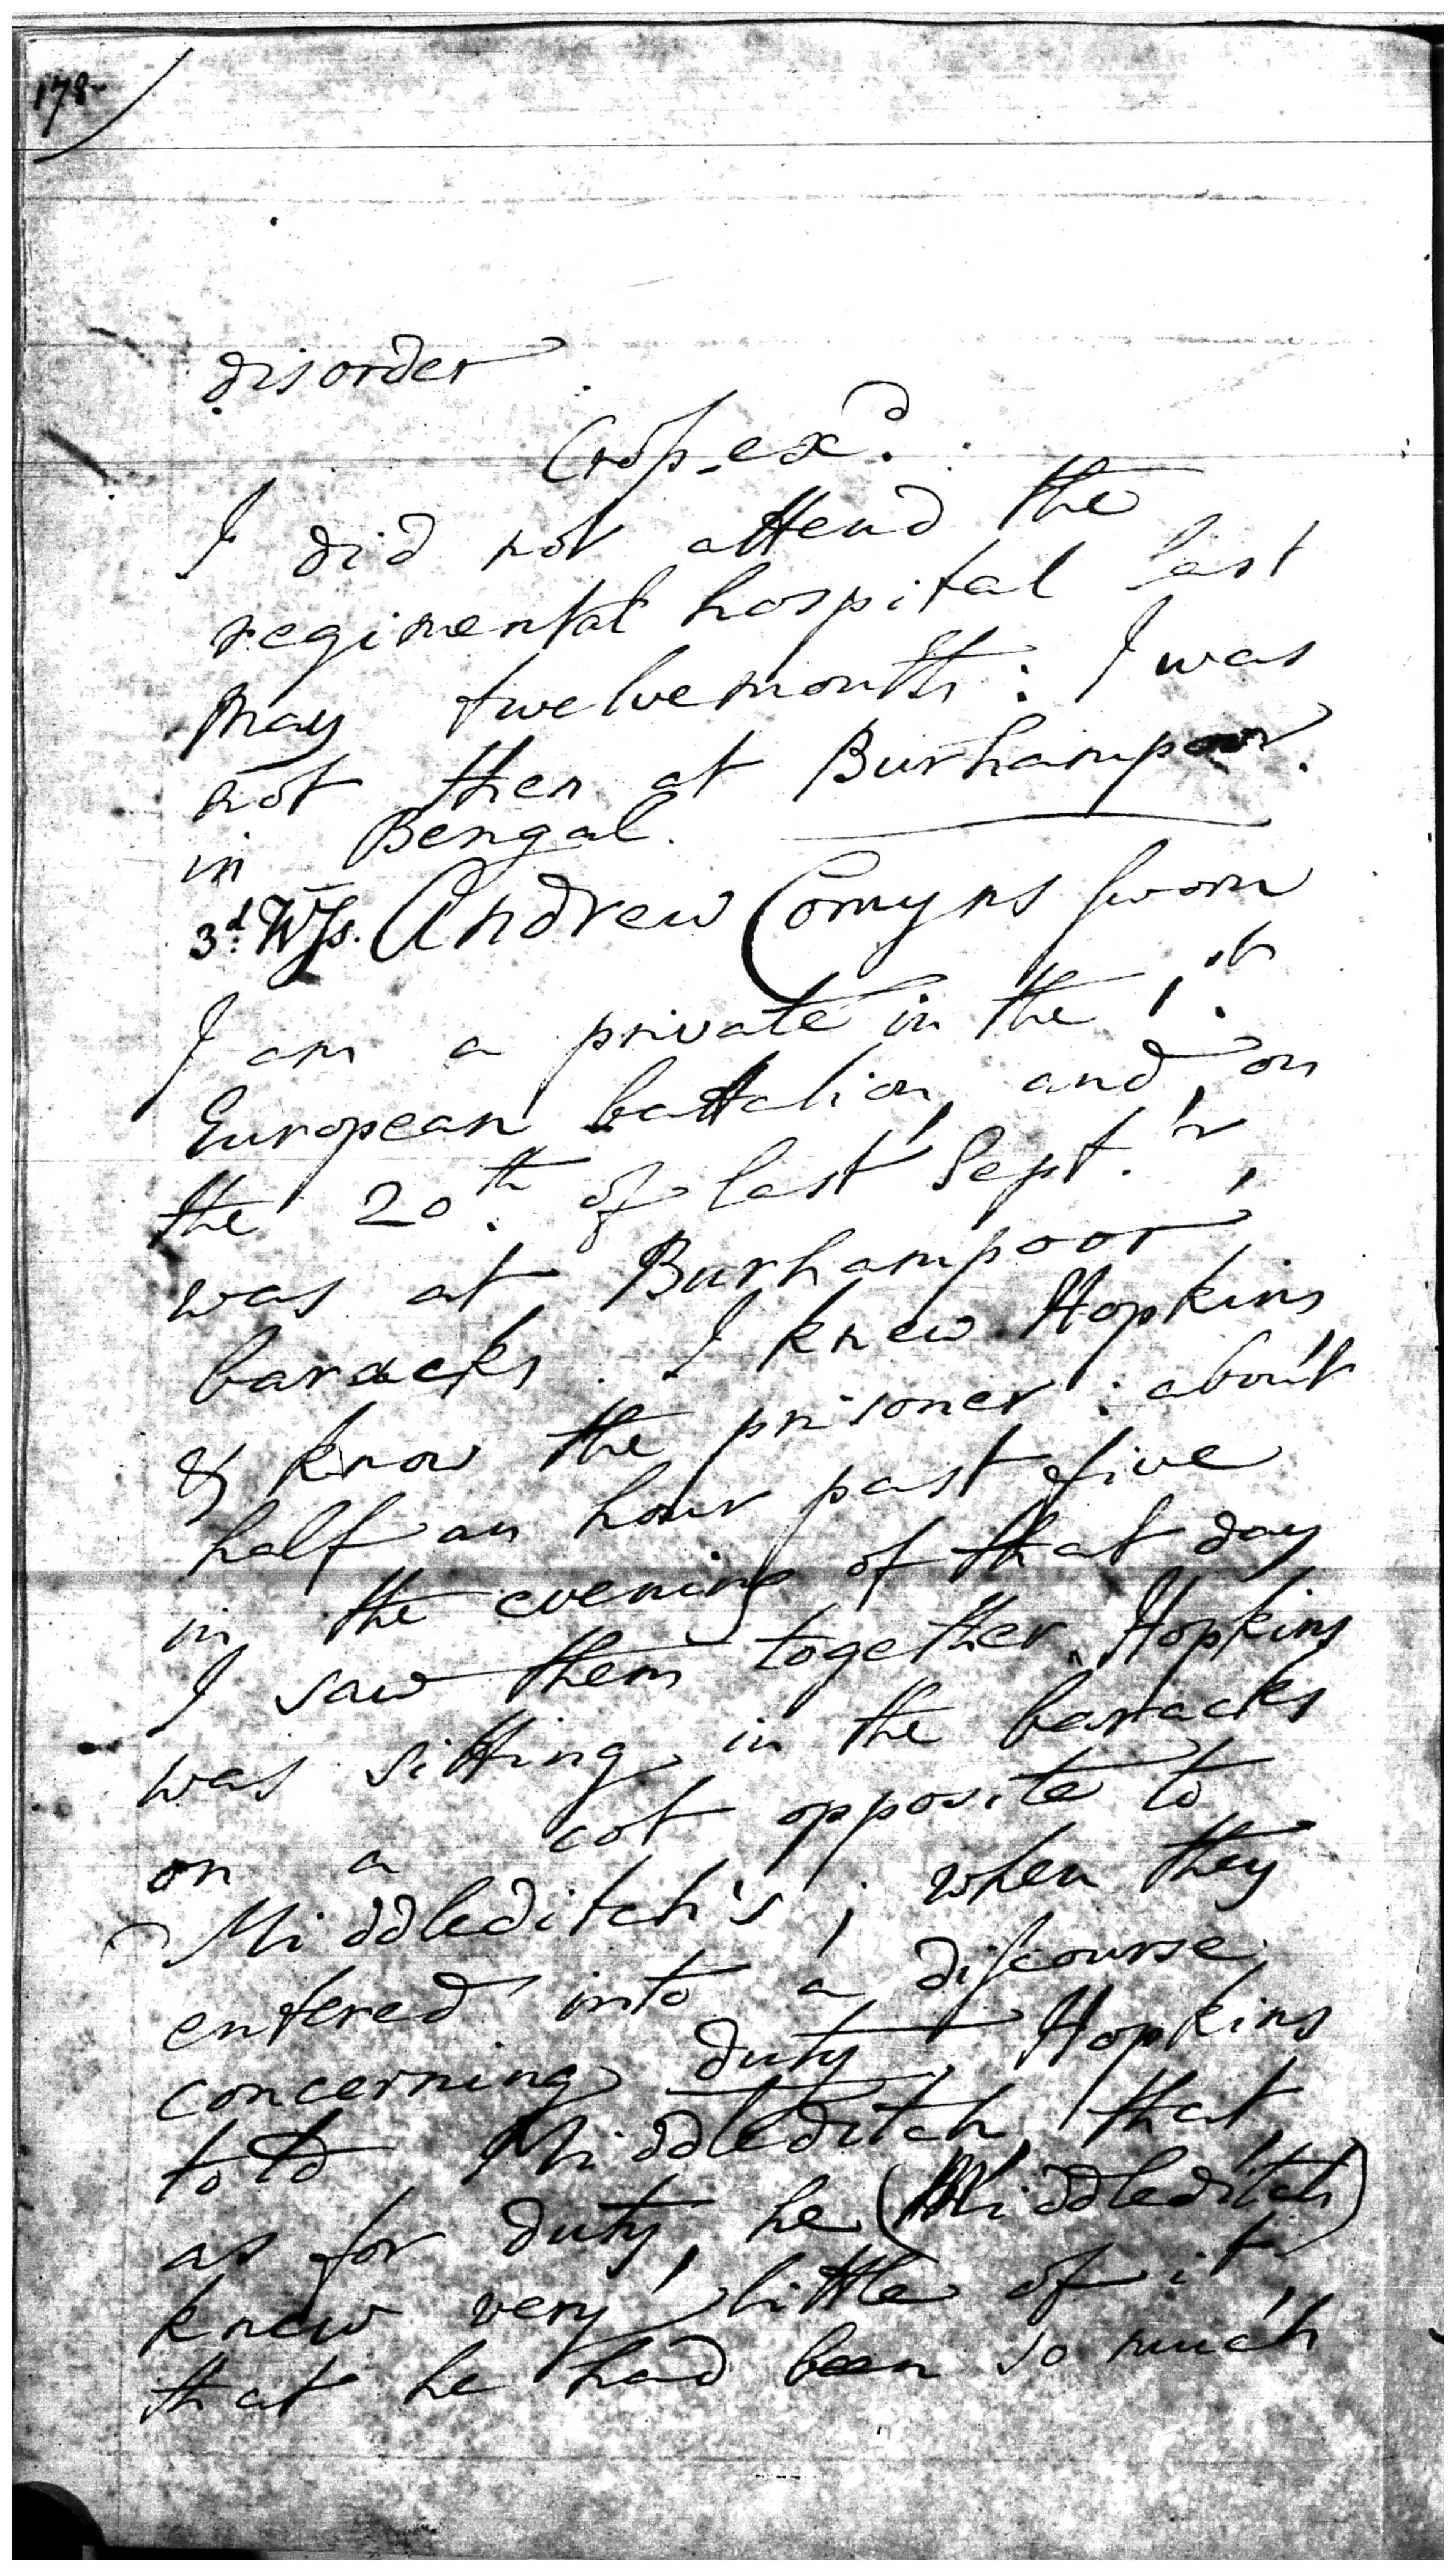 178
disorder
Cross-ex.d
I did not attend the
regimental hospital last
May twelvemonth: I was
not then at Burhampoor
in Bengal.
3.d Wss. Andrew Comyns sworn
I am a private in the 1.st
European battalion, and, on
the 20.th of last Sept.br,
was at Burhampoor
baracks. I knew Hopkins
& know the prisoner: about
half an hour past five
in the evening of that day
I saw them together. Hopkins
was sitting in the baracks
on a cot opposite to
Middleditch's; when they
entered into a discourse
concerning duty. Hopkins
told Middleditch, that,
as for duty, he (Middleditch)
knew very little of it,
that he had been so much